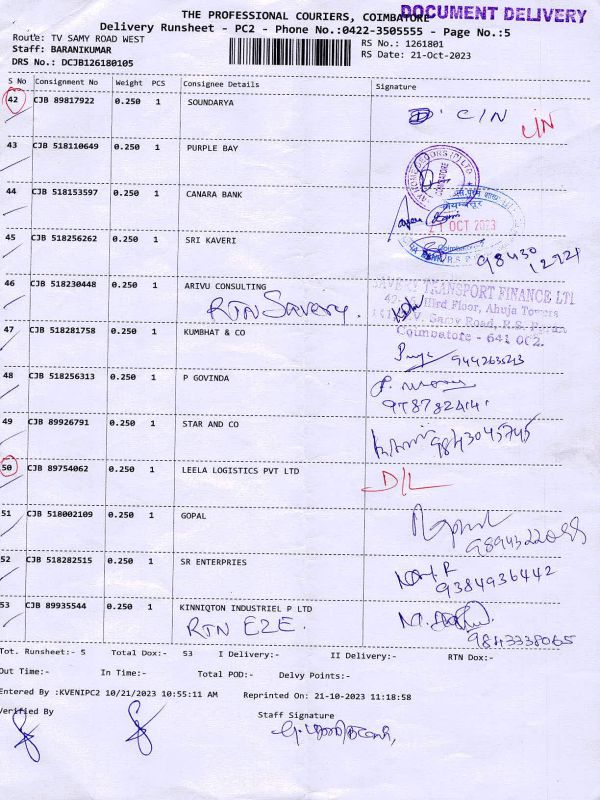 THE PROFESSIONAL COURIERS, COIMBATORE
DOCUMENT DELIVERY
Delivery Runsheet - PC2 - Phone No.:0422-3505555 - Page No.:5
Route: TV SAMY ROAD WEST
RS No.: 1261801
Staff: BARANIKUMAR
RS Date: 21-Oct-2023
DRS No.: DCJB126180105
S No Consignment No Weight PCS Consignee Details Signature
42 CJB 89817922 0.250 1 SOUNDARYA C/N
43 CJB 518110649 0.250 1 PURPLE BAY
44 CJB 518153597 0.250 1 CANARA BANK
OCT 2023
45 CJB 518256262 0.250 1 SRI KAVERI
46 CJB 518230448 0.250 1 ARIVU CONSULTING
TRANSPORT FINANCE LTD
RTN Savery.
IIIrd Floor, Ahuja Towers
47 CJB 518281758 0.250 1 KUMBHAT & CO
Coimbatore - 641 002.
48 CJB 518256313 0.250 1 P GOVINDA
49 CJB 89926791 0.250 1 STAR AND CO
9843045745
50 CJB 89754062 0.250 1 LEELA LOGISTICS PVT LTD
D/L
51 CJB 518002109 0.250 1 GOPAL
52 CJB 518282515 0.250 1 SR ENTERPRIES
9384936442
53 CJB 89935544 0.250 1 KINNIQTON INDUSTRIEL P LTD
RTN EZE.
9843338065
Tot. Runsheet:- 5 Total Dox:- 53 I Delivery:- II Delivery:- RTN Dox:-
Out Time:- In Time:- Total POD:- Delvy Points:-
Entered By :KVENIPC2 10/21/2023 10:55:11 AM Reprinted On: 21-10-2023 11:18:58
Verified By Staff Signature